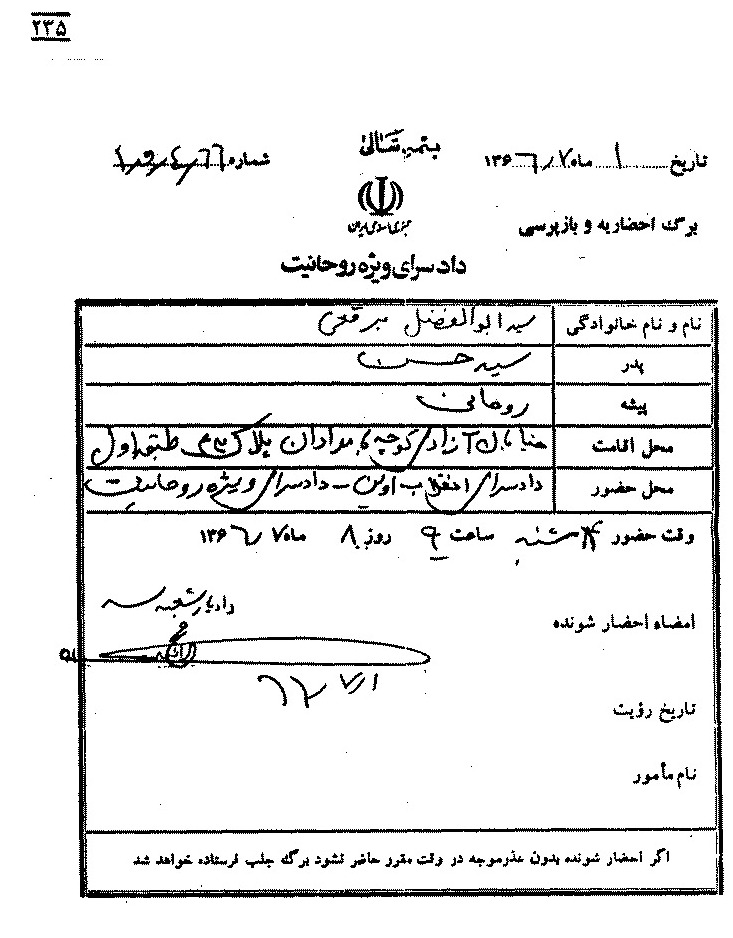 ۲۳۵
بسمه تعالی
تاریخ ۱ ماه ۷ ۱۳۶۶
شماره
جمهوری اسلامی ایران
برگ احضاریه و بازپرسی
دادسرای ویژه روحانیت
نام و نام خانوادگی سید ابوالفضل برقعی
پدر سید حسن
پیشه روحانی
محل اقامت خیابان آزادی کوچه پلاک طبقه اول
محل حضور دادسرای انقلاب اوین - دادسرای ویژه روحانیت
وقت حضور ۴ شنبه ساعت ۹ روز ۸ ماه ۷ ۱۳۶۶
امضاء احضار شونده
دادیار شعبه سه
۶۶/۷/۱
تاریخ رؤیت
نام مأمور
اگر احضار شونده بدون عذرموجه در وقت مقرر حاضر نشود برگ جلب فرستاده خواهد شد